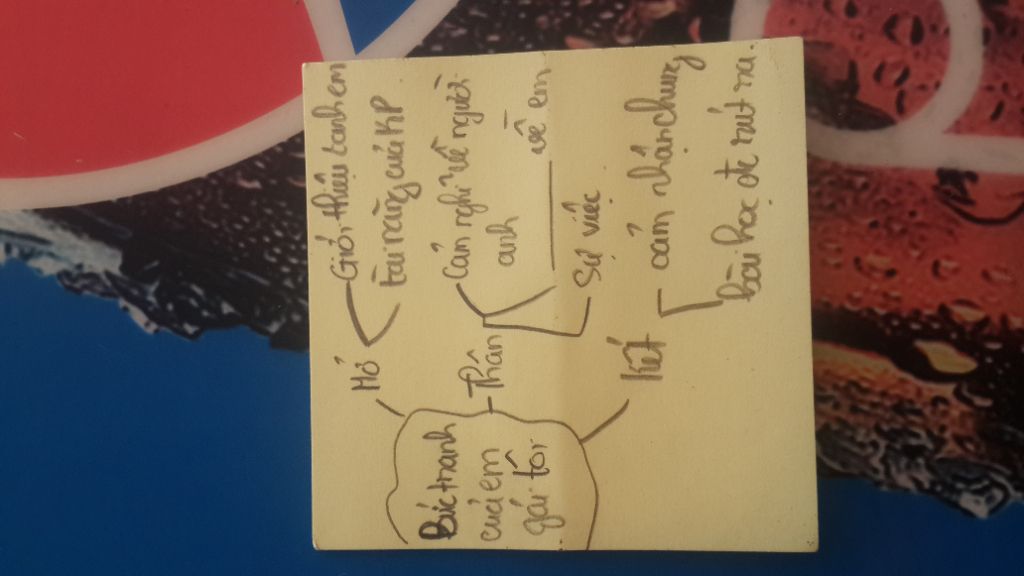 Bức tranh
của em
gái tôi
Mở
Giới thiệu tranh em
tài năng của KP
Thân
Cảm nghĩ về người
anh
về em
Sự việc
Kết
cảm nhận chung
bài học đc rút ra.